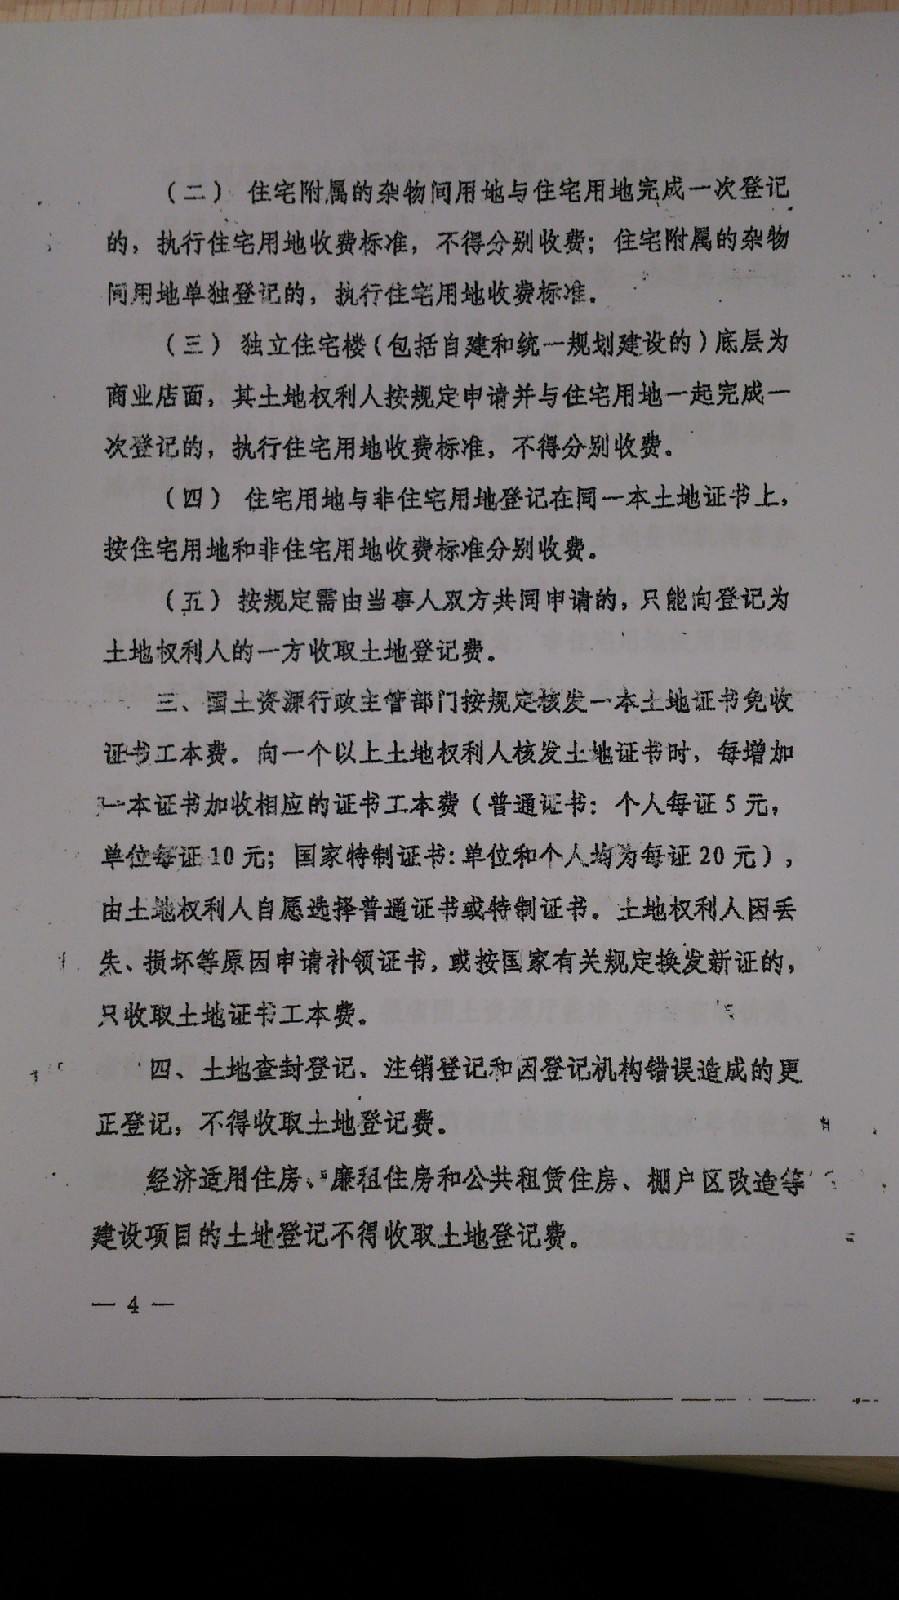 （二） 住宅附属的杂物间用地与住宅用地完成一次登记
的，执行住宅用地收费标准，不得分别收费；住宅附属的杂物
间用地单独登记的，执行住宅用地收费标准。
（三） 独立住宅楼（包括自建和统一规划建设的）底层为
商业店面，其土地权利人按规定申请并与住宅用地一起完成一
次登记的，执行住宅用地收费标准，不得分别收费。
（四） 住宅用地与非住宅用地登记在同一本土地证书上，
按住宅用地和非住宅用地收费标准分别收费。
（五） 按规定需由当事人双方共同申请的，只能向登记为
土地权利人的一方收取土地登记费。
三、国土资源行政主管部门按规定核发一本土地证书免收
证书工本费。向一个以上土地权利人核发土地证书时，每增加
一本证书加收相应的证书工本费（普通证书：个人每证5元，
单位每证10元；国家特制证书：单位和个人均为每证20元），
由土地权利人自愿选择普通证书或特制证书。土地权利人因丢
失、损坏等原因申请补领证书，或按国家有关规定换发新证的，
只收取土地证书工本费。
四、土地查封登记、注销登记和因登记机构错误造成的更
正登记，不得收取土地登记费。
经济适用住房、廉租住房和公共租赁住房、棚户区改造等
建设项目的土地登记不得收取土地登记费。
— 4 —